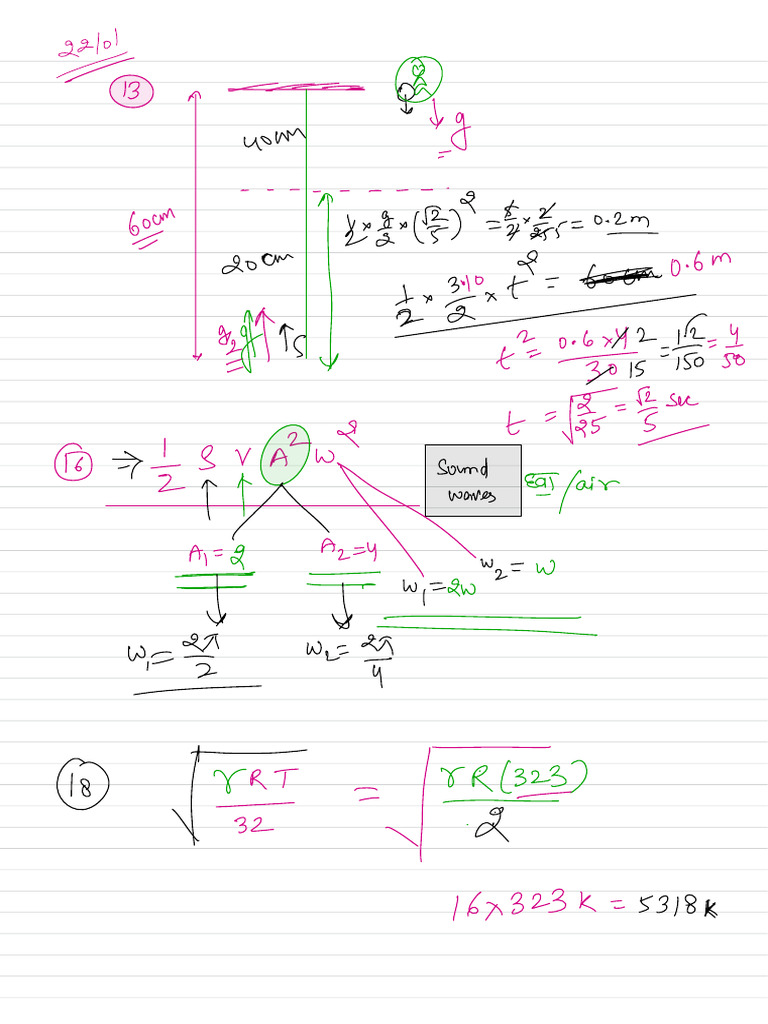 22/01
13
40cm
g
=
60cm
1/2 × g/2 × (√2/5)² = 5/2 × 2/25 5 = 0.2 m
20cm
1/2 × 3×10/2 × t² = 60cm 0.6 m
g/2
S
t² = 0.6 × 4 2 / 30 15 = 12/150 = 4/50
t = √2/25 = √2/5 sec
16 ⇒ 1/2 S V A² W²
Sound
waves
/air
A₁ = 2
A₂ = 4
W₂ = W
W₁ = 2W
W₁ = 2π/2
W₂ = 2π/4
18 √γRT/32 = √γR(323)/2
16×323K = 5318K